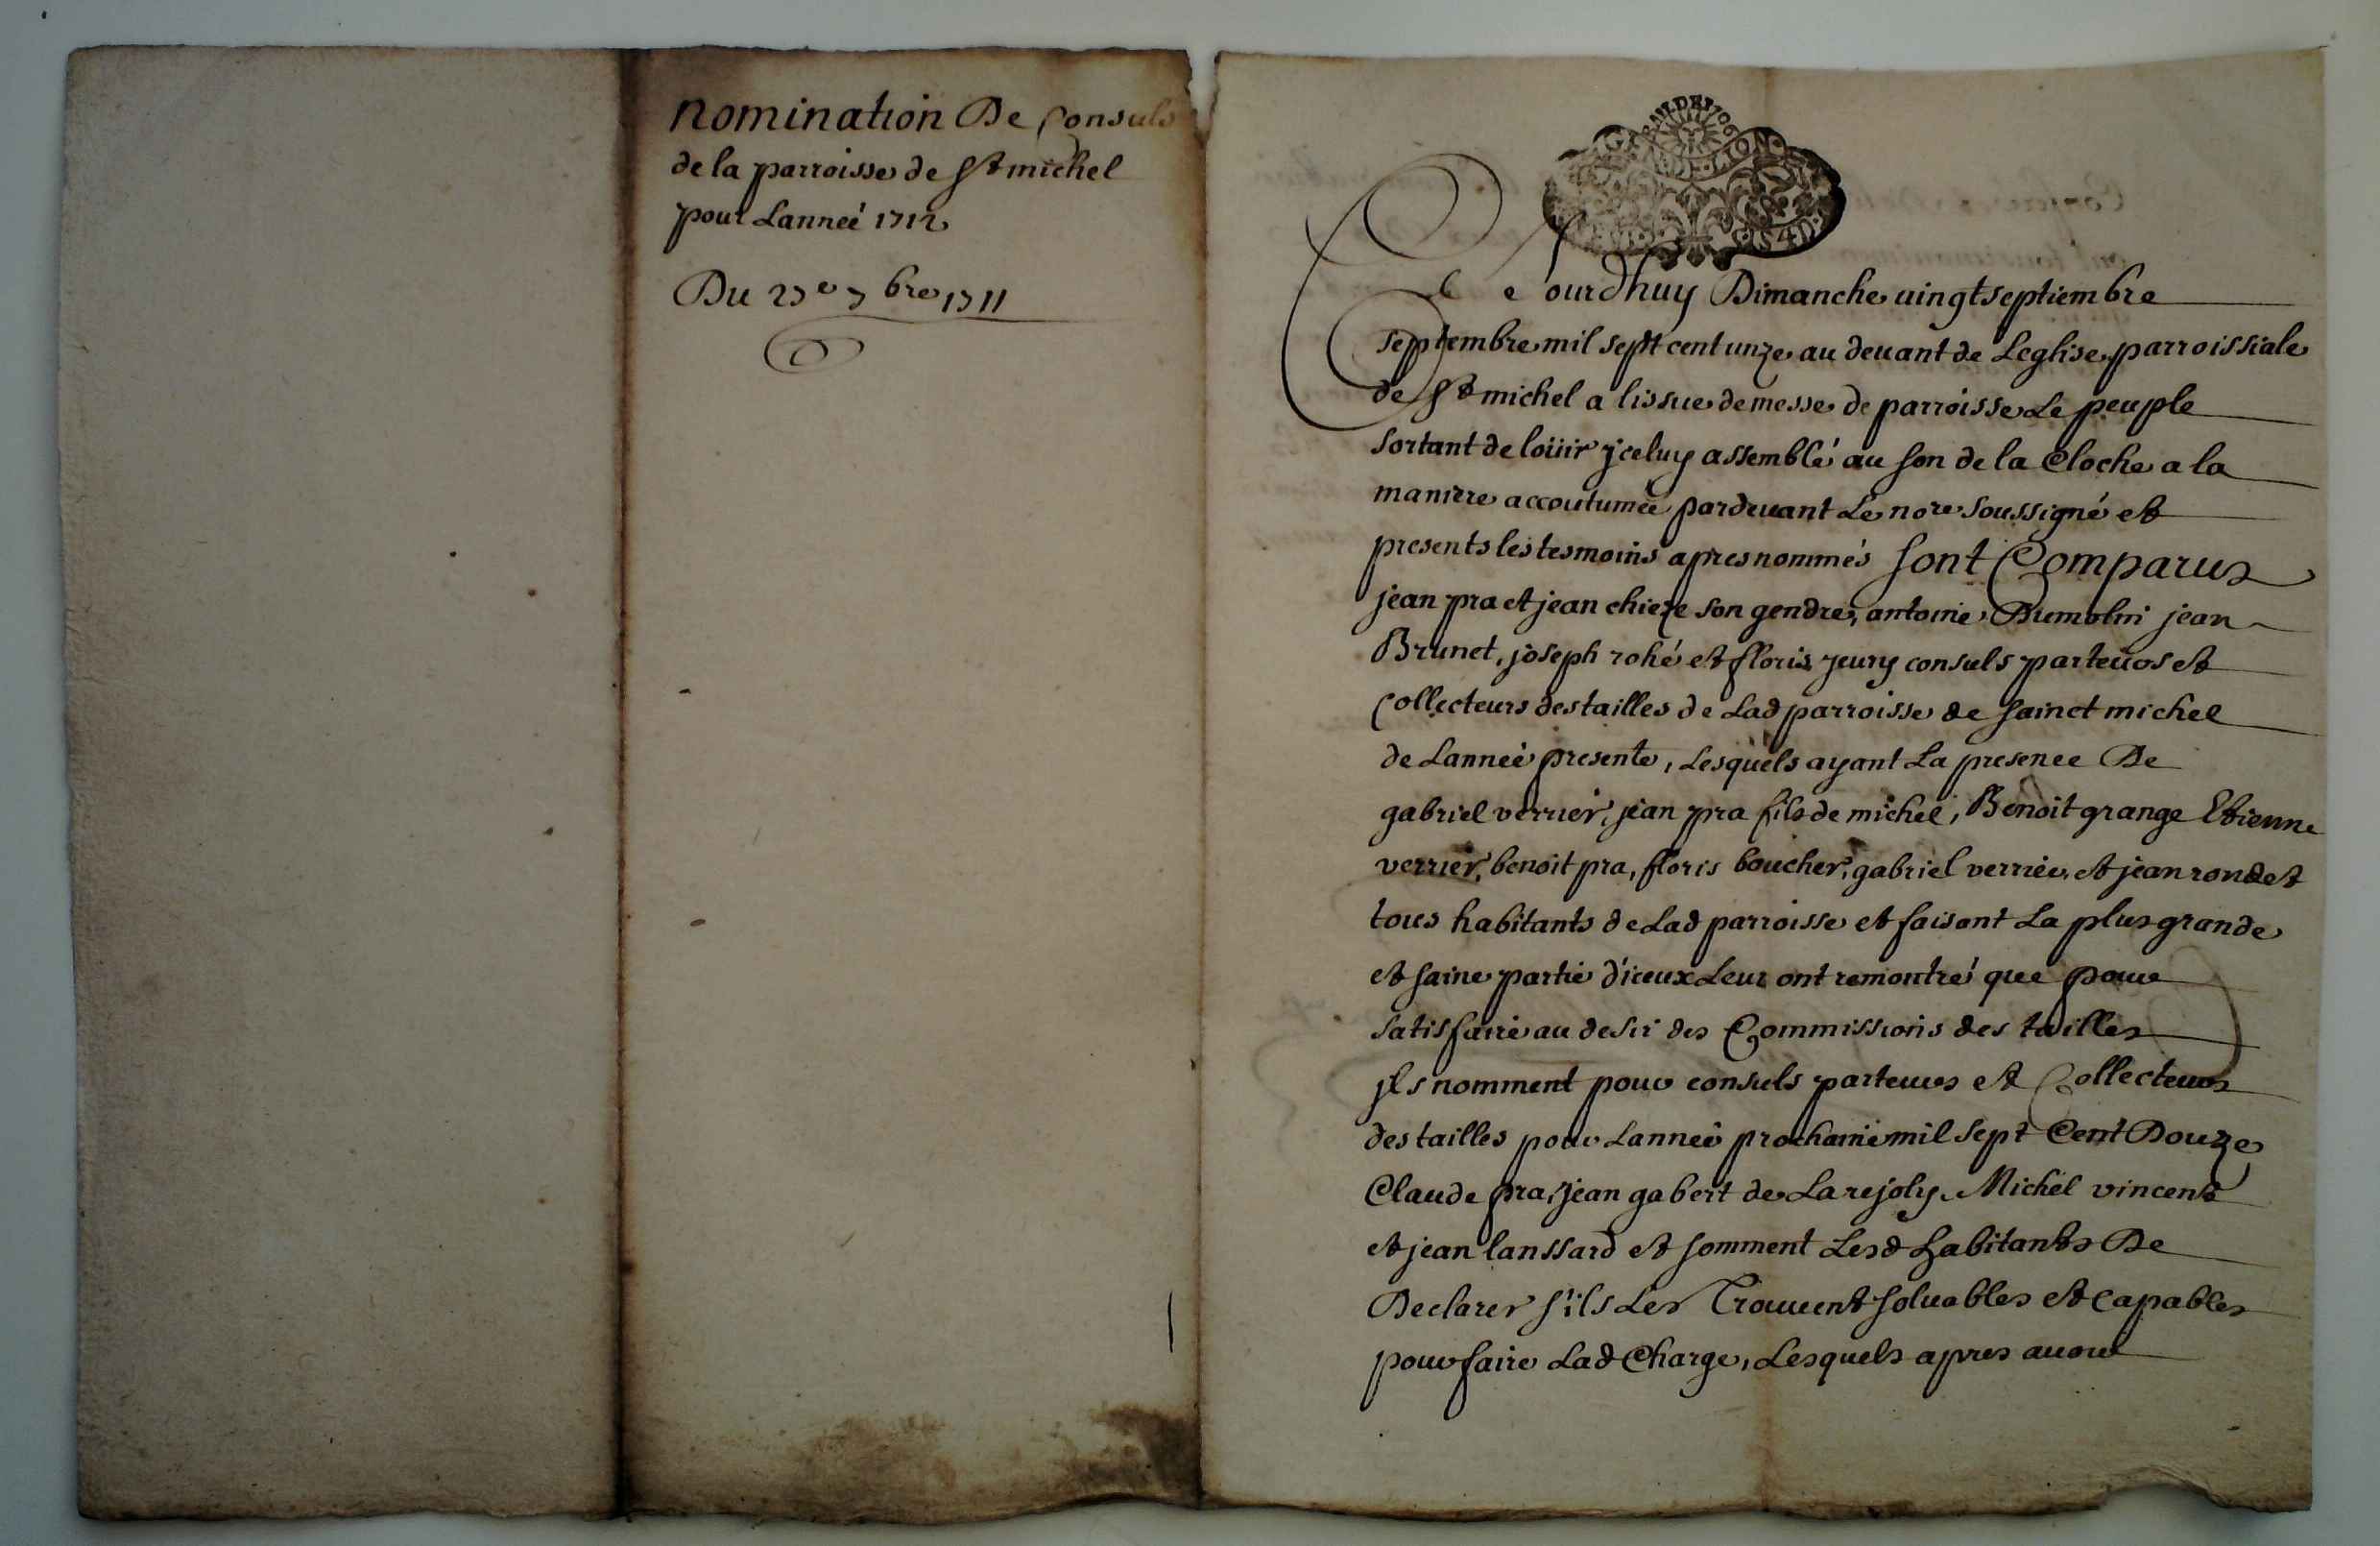 nomination De Consuls
de la parroisse de St michel
pour Lanneé 1712
Du 27e 7bre 1711
Ce Jourdhuy Dimanche uingtseptiembre
septembre mil sept cent unze au deuant de Leglise parroissiale
de St michel a lissue de messe de parroisse Le peuple
sortant de loüir jceluy assemblé au son de la Cloche a la
maniere accoutumeé pardeuant Le nore soussigné et
presents les tesmoins apres nommés sont Comparus
jean pra et jean chieze son gendre, antoine Dumolin jean
Brunet, joseph rohé et floris jeury consuls parteurs et
Collecteurs des tailles de Lad parroisse de sainct michel
de Lanneé presente, Lesquels ayant La presence De
gabriel verrier, jean pra fils de michel, Benoit grange Etienne
verrier, benoit pra, floris boucher, gabriel verrier, et jean rondet
tous habitants de Lad parroisse et faisant La plus grande
et saine partie d'iceux Leur ont remontré que pour
satisfaire au desir des Commissions des tailles
jls nomment pour consuls parteurs et Collecteurs
des tailles pour Lanneé prochaine mil sept Cent Douze
Claude pra, jean gabert de Larejoly Michel vincent
et jean lanssard et somment Lesd habitants De
Declarer s'ils Les Trouuent soluables et Capables
pour faire Lad Charge, Lesquels apres auoir